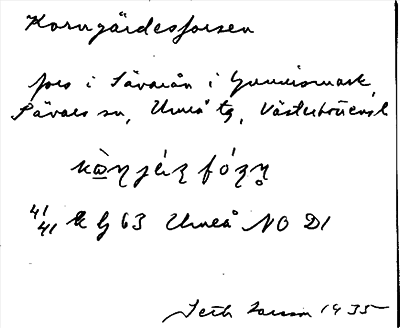 Korngärdesforsen
fors i Sävarån i Gunnismark,
Sävars sn, Umeå tg, Västerbottens l
41/41 E G 63 Umeå NO D1
Seth Larsson 1935